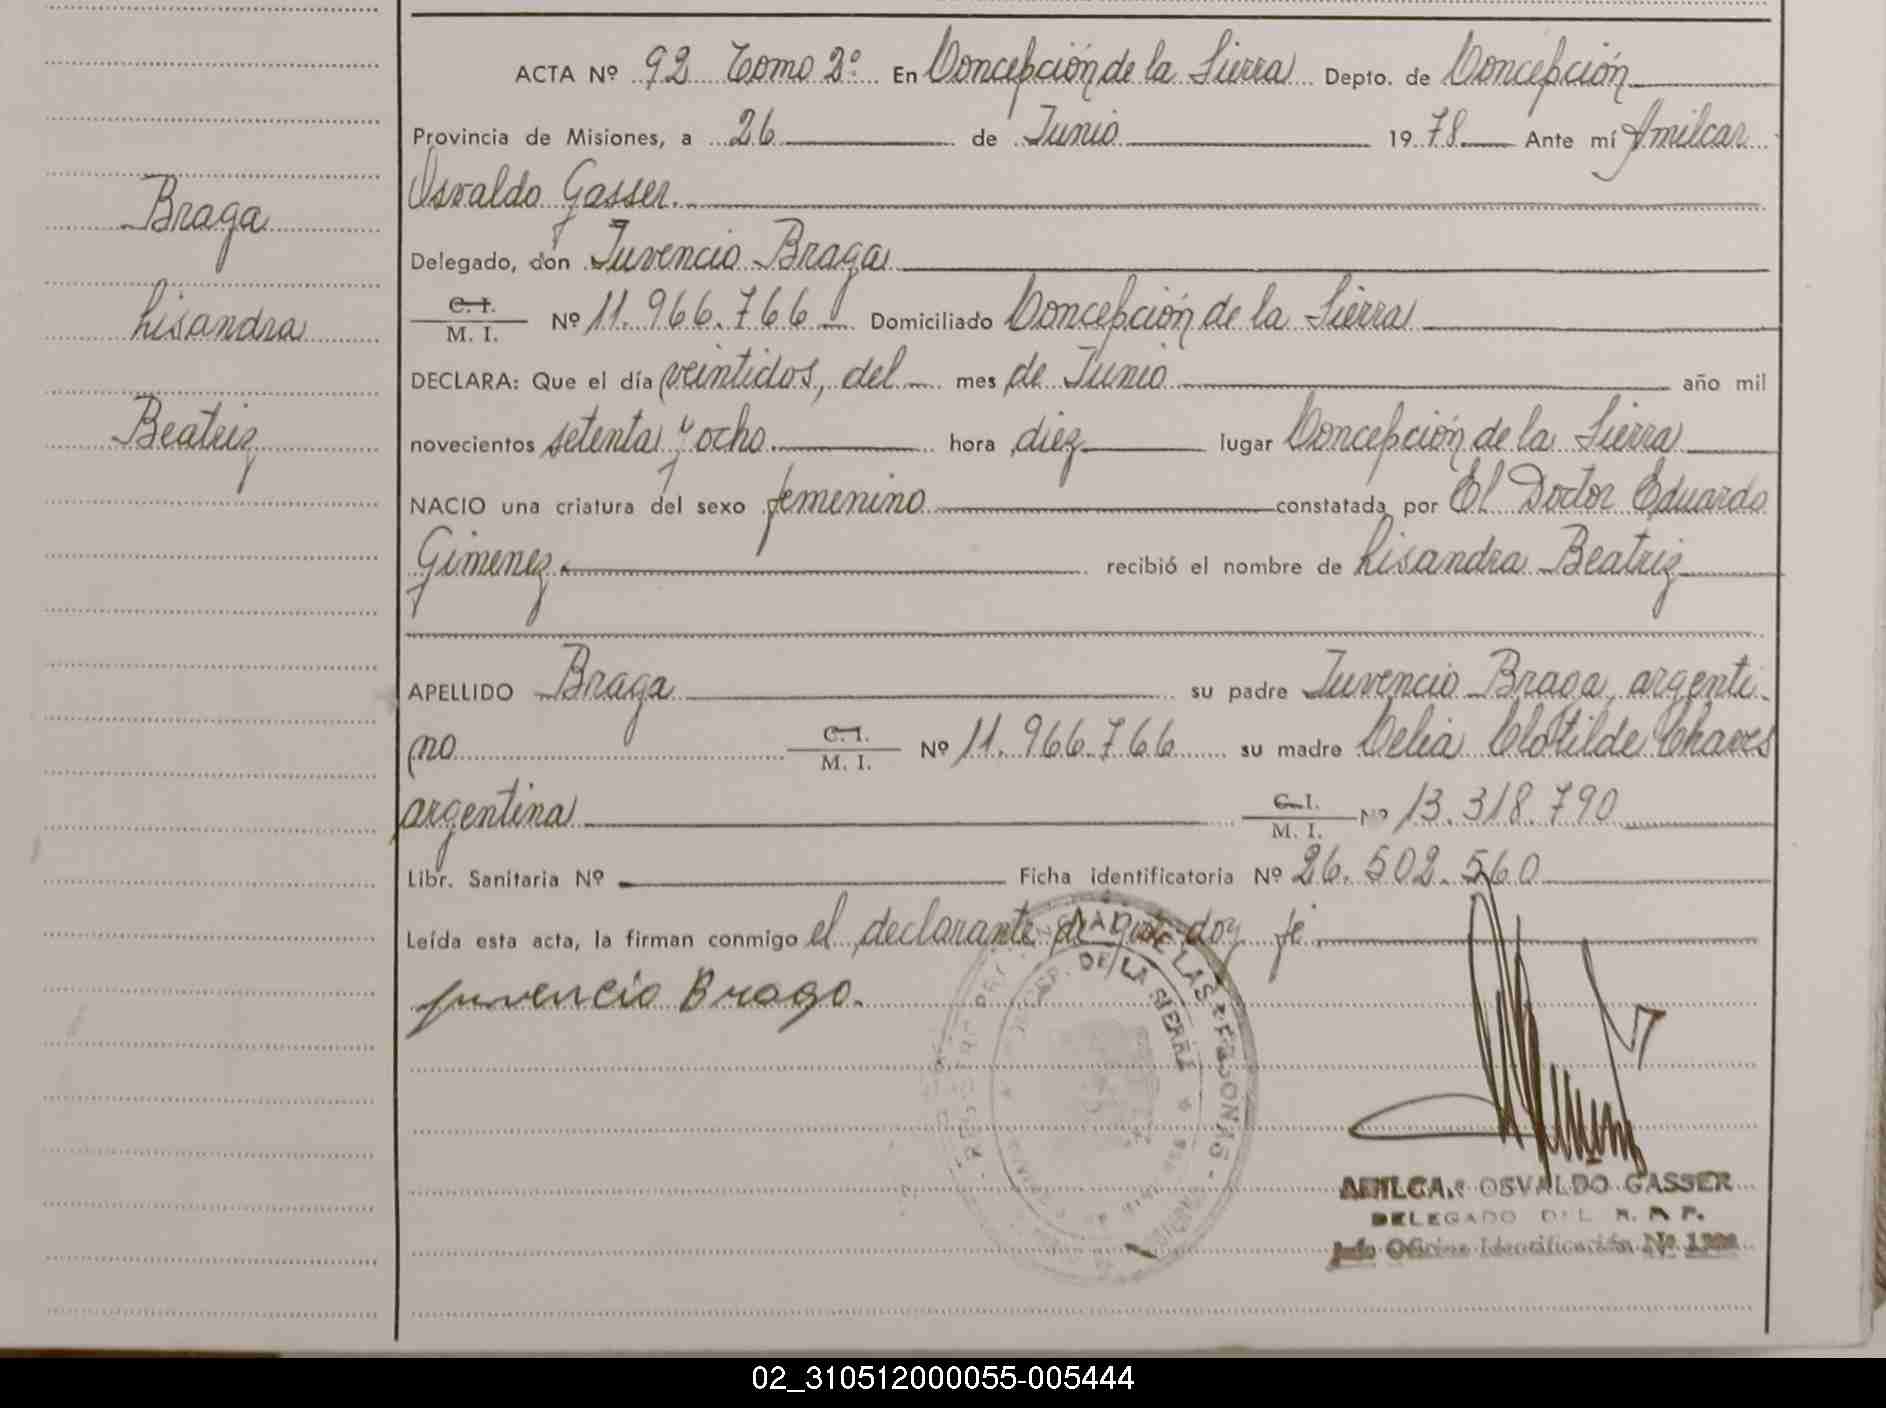 Braga
Lisandra
Beatriz
ACTA Nº 92 Tomo 2º En Concepción de la Sierra Depto. de Concepción
Provincia de Misiones, a 26 de Junio 1978 Ante mí Amilcar
Osvaldo Gasser.
Delegado, don Juvencio Braga
C. I.
M. I. Nº 11.966.766 Domiciliado Concepción de la Sierra
DECLARA: Que el día veintidos, del mes de Junio año mil
novecientos setenta y ocho hora diez lugar Concepción de la Sierra
NACIO una criatura del sexo femenino constatada por El Doctor Eduardo
Gimenez. recibió el nombre de Lisandra Beatriz
APELLIDO Braga su padre Juvencio Braga, argenti-
no C. I.
M. I. Nº 11.966.766 su madre Celia Clotilde Chaves
argentina C. I.
M. I. Nº 13.318.790
Libr. Sanitaria Nº Ficha identificatoria Nº 26.502.560
Leída esta acta, la firman conmigo el declarante de que doy fé
juvencio Braga.
DE LAS PERSONAS
DE LA SIERRA
AMILCAR OSVALDO GASSER
DELEGADO DEL R. P.
Jefe Oficina Identificación Nº
02_310512000055-005444